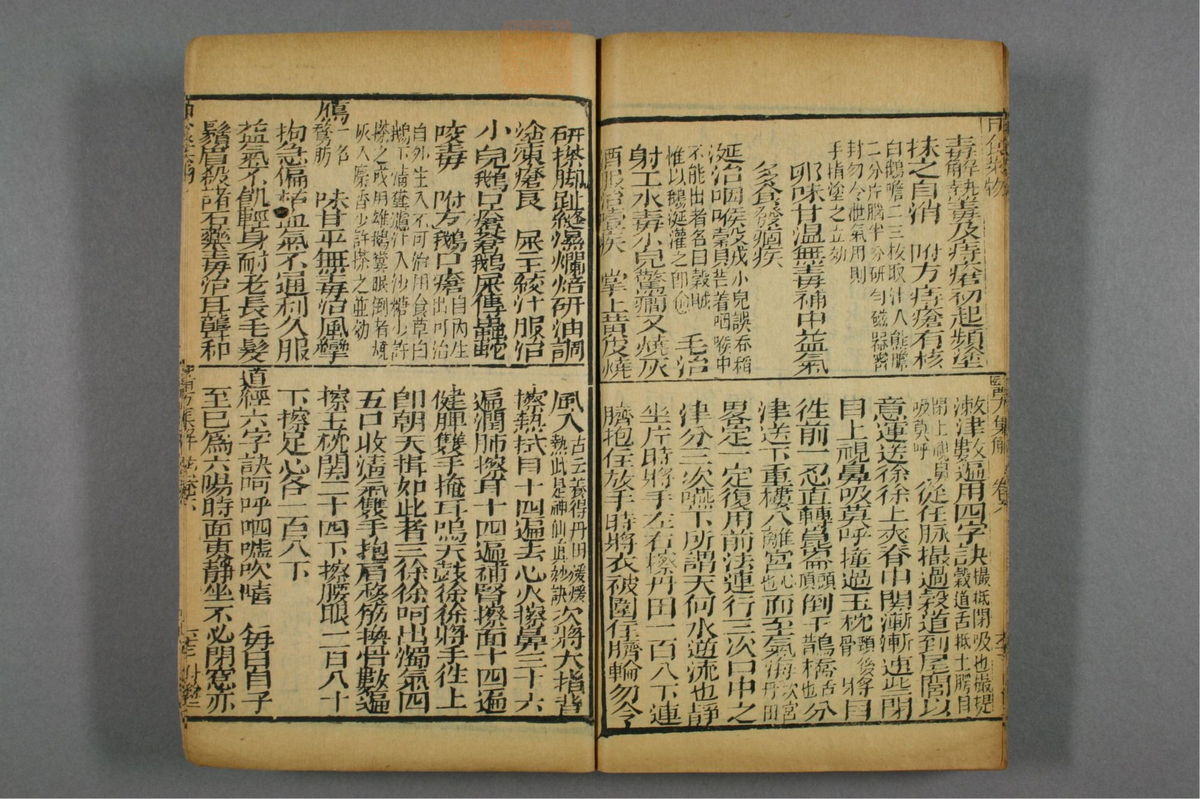 毒解熱毒及痔瘡初起頻塗
抹之自消　附方痔瘡有核
白鵝膽二三枚取汁入熊膽
二分片腦半分研勻磁器密
封勿令泄氣用則
手指塗之立効
卵味甘温無毒補中益氣
多食發痼疾
涎治咽喉穀戎小兒誤吞稻
芒着咽喉中
不能出者名曰穀賊
惟以鵝涎灌之即愈　毛治
射工水毒小兒驚癇又燒灰
酒服治噎疾　掌上黃皮燒
研搽脚趾縫濕爛焙研油調
塗凍瘡良　屎主絞汁服治
小兒鵝口瘡蒼鵝屎傅蟲蛇
咬毒　附方鵝口瘡自內生
出可治
自外生入不可治用食草白
鵝下清糞濾汁入沙糖少許
搽之或用雄鵝糞眠倒者燒
灰入麝香少許搽之並効
鴈一名鶩肪　味甘平無毒治風攣
拘急偏枯血氣不通利久服
益氣不飢輕身耐老長毛髮
鬚眉殺諸石藥毒治耳聾和
漱津數遍用四字訣撮抵閉吸也撮提
穀道舌抵上腭目
閉上視鼻
吸莫呼從任脉撮過穀道到尾閭以
意運送徐徐上夾脊中關漸漸速些閉
目上視鼻吸莫呼撞過玉枕頸後骨將目
徃前一忍直轉崑崙頭頂倒下鵲橋舌也分
津送下重樓入離宮心也而至氣海坎宮丹田
畧定一定復用前法連行三次口中之
津分三次嚥下所謂天河水逆流也靜
坐片時將手左右擦丹田一百八下連
臍抱住放手時將衣被圍住臍輪勿令
風入古云養得丹田煖煖
熱此是神仙真妙訣次將大指背
擦熱拭目十四遍去心火擦鼻三十六
遍潤肺擦耳十四遍補腎擦面十四遍
健脾雙手掩耳鳴天鼓徐徐將手徃上
即朝天揖如此者三徐徐呵出濁氣四
五口收清氣雙手抱肩移筋換骨數遍
擦玉枕關二十四下擦腰眼一百八十
下擦足心各一百八下
道經六字訣呵呼呬噓吹嘻　每日自子
至巳為六陽時面東靜坐不必閉窓亦